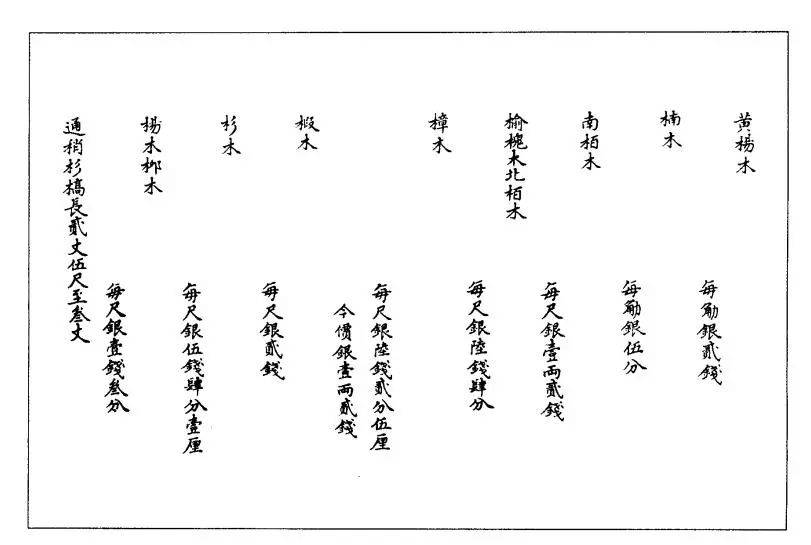 黄楊木
每觔銀貳錢
楠木
每觔銀伍分
南栢木
每尺銀壹兩貳錢
榆槐木北栢木
每尺銀陸錢肆分
樟木
每尺銀陸錢貳分伍厘
今價銀壹兩貳錢
椴木
每尺銀貳錢
杉木
每尺銀伍錢肆分壹厘
楊木柳木
每尺銀壹錢叁分
通梢杉槁長貳丈伍尺至叁丈